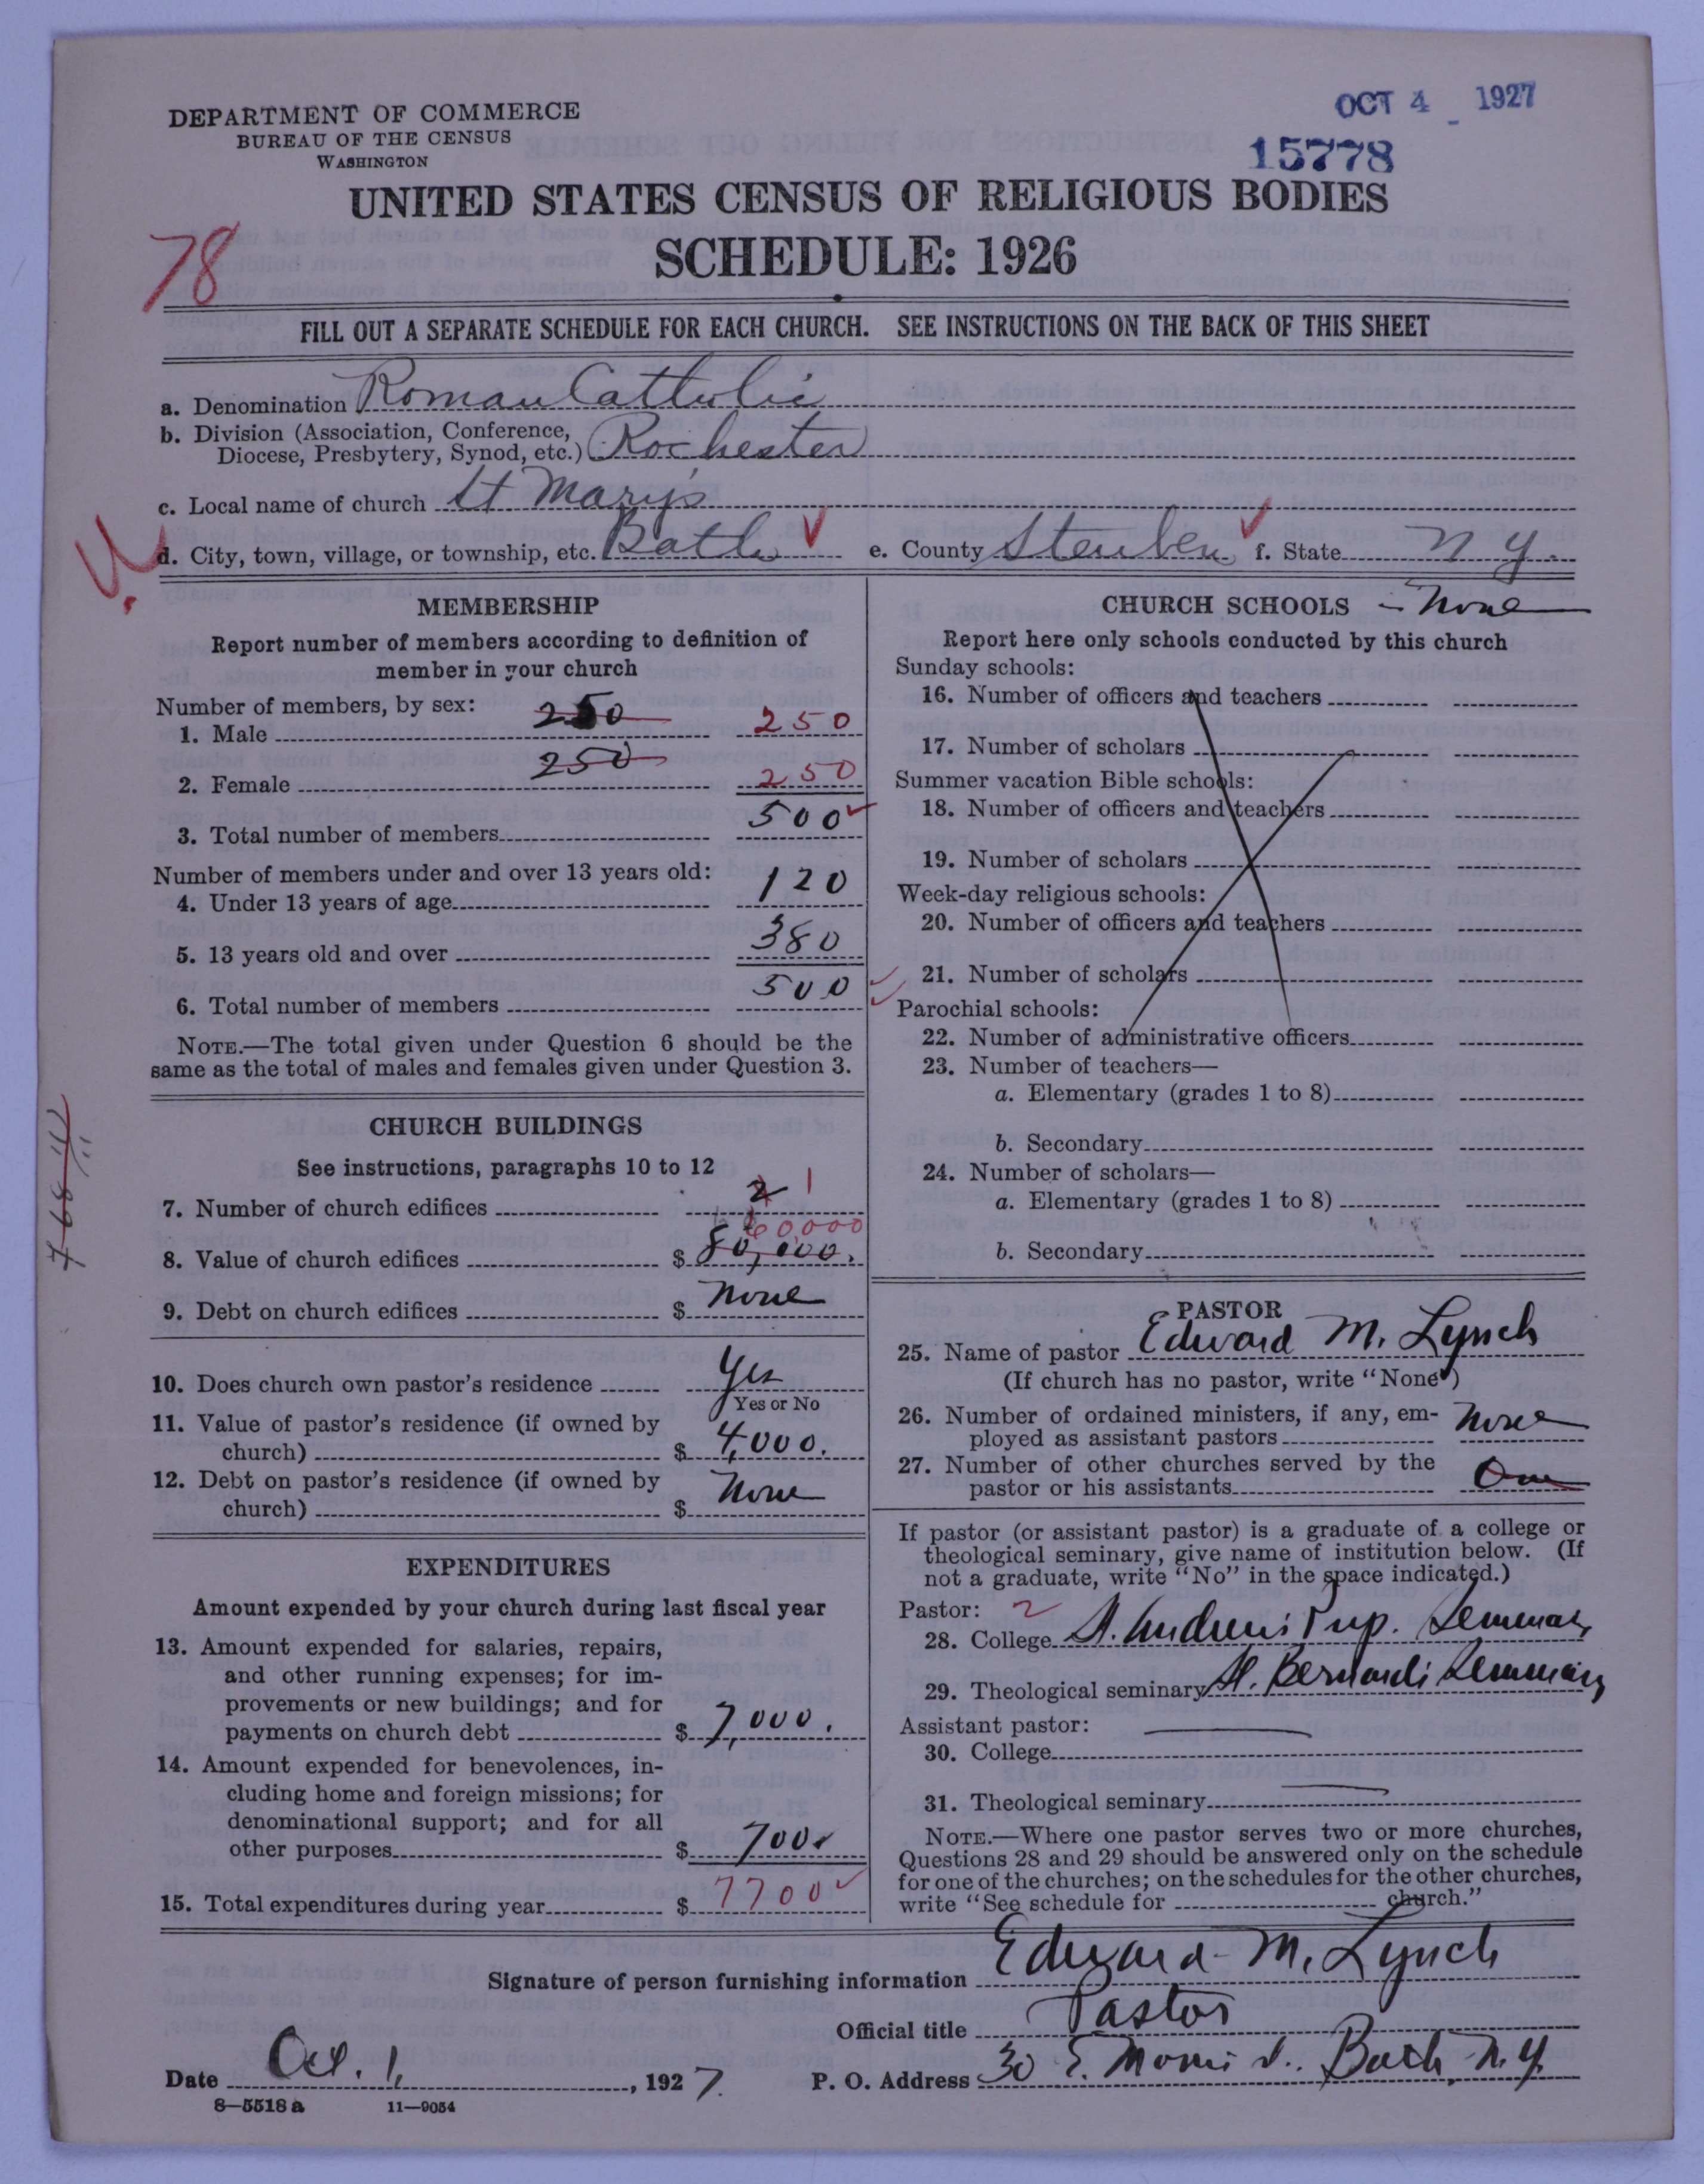 DEPARTMENT OF COMMERCE
BUREAU OF THE CENSUS
WASHINGTON
OCT 4 1927
15778
UNITED STATES CENSUS OF RELIGIOUS BODIES
SCHEDULE: 1926
78
FILL OUT A SEPARATE SCHEDULE FOR EACH CHURCH. SEE INSTRUCTIONS ON THE BACK OF THIS SHEET
a. Denomination Roman Catholic
b. Division (Association, Conference, Diocese, Presbytery, Synod, etc.) Rochester
c. Local name of church St Mary's
d. City, town, village, or township, etc. Bath e. County Steuben f. State N Y.
MEMBERSHIP
Report number of members according to definition of
member in your church
Number of members, by sex:
1. Male 250 250
2. Female 250 250
3. Total number of members 500
Number of members under and over 13 years old:
4. Under 13 years of age 120
5. 13 years old and over 380
6. Total number of members 500
NOTE.—The total given under Question 6 should be the
same as the total of males and females given under Question 3.
CHURCH BUILDINGS
See instructions, paragraphs 10 to 12
7. Number of church edifices 2 1
60,000
8. Value of church edifices $ 80,000.
9. Debt on church edifices $ None
10. Does church own pastor's residence Yes
Yes or No
11. Value of pastor's residence (if owned by
church) $ 4,000.
12. Debt on pastor's residence (if owned by
church) $ None
EXPENDITURES
Amount expended by your church during last fiscal year
13. Amount expended for salaries, repairs,
and other running expenses; for im-
provements or new buildings; and for
payments on church debt $ 7,000.
14. Amount expended for benevolences, in-
cluding home and foreign missions; for
denominational support; and for all
other purposes $ 700.
15. Total expenditures during year $ 7700
CHURCH SCHOOLS - None
Report here only schools conducted by this church
Sunday schools:
16. Number of officers and teachers
17. Number of scholars
Summer vacation Bible schools:
18. Number of officers and teachers
19. Number of scholars
Week-day religious schools:
20. Number of officers and teachers
21. Number of scholars
Parochial schools:
22. Number of administrative officers
23. Number of teachers—
a. Elementary (grades 1 to 8)
b. Secondary
24. Number of scholars—
a. Elementary (grades 1 to 8)
b. Secondary
PASTOR
25. Name of pastor Edward M. Lynch
(If church has no pastor, write "None")
26. Number of ordained ministers, if any, em-
ployed as assistant pastors None
27. Number of other churches served by the
pastor or his assistants One
If pastor (or assistant pastor) is a graduate of a college or
theological seminary, give name of institution below. (If
not a graduate, write "No" in the space indicated.)
Pastor: 2
28. College St. Andrew's Prep. Seminary
29. Theological seminary St. Bernard's Seminary
Assistant pastor:
30. College
31. Theological seminary
NOTE.—Where one pastor serves two or more churches,
Questions 28 and 29 should be answered only on the schedule
for one of the churches; on the schedules for the other churches,
write "See schedule for church."
Signature of person furnishing information Edward M. Lynch
Official title Pastor
Date Oct. 1, 1927. P. O. Address 30 E. Morris St. Bath, N.Y.
8—5518a 11—9054